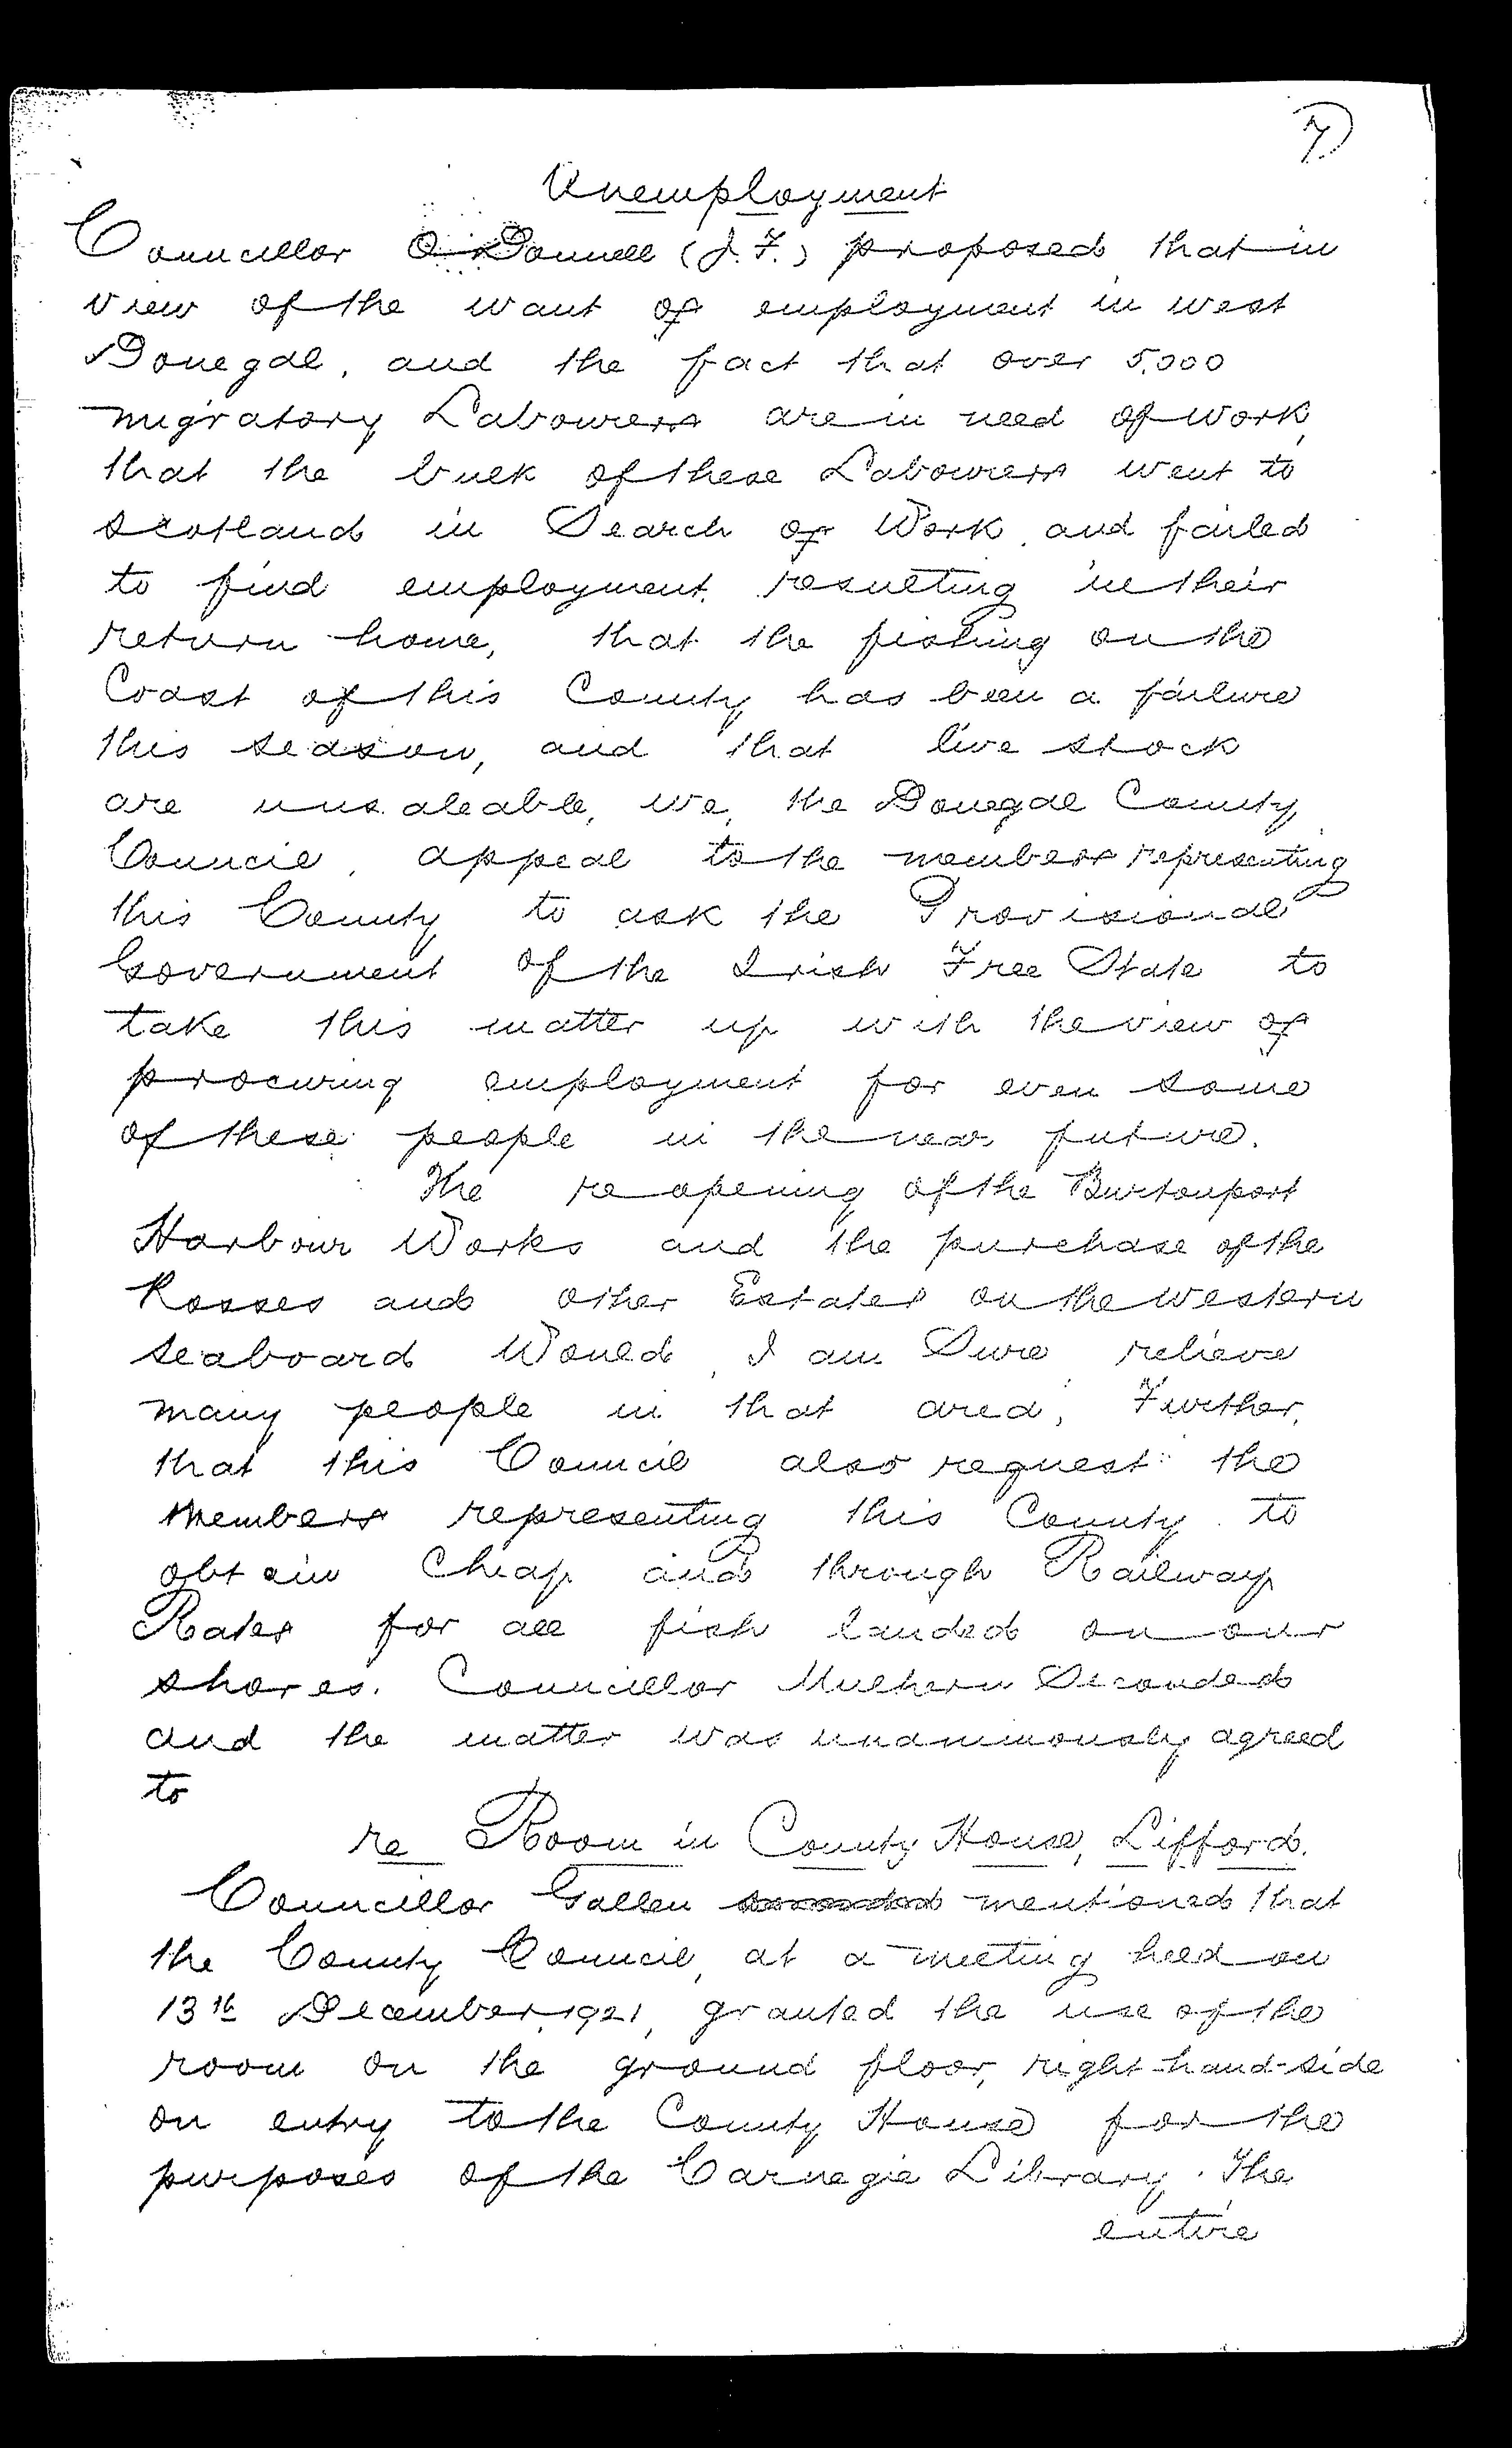 7
Unemployment
Councillor O'Donnell (J.F.) proposed that in
view of the want of employment in west
Donegal, and the fact that over 5,000
migratory Labourers are in need of work,
that the bulk of these Labourers went to
Scotland in Search of Work, and failed
to find employment, resulting in their
return home, that the fishing on the
Coast of this County has been a failure
this season, and that live stock
are unsaleable, we, the Donegal County
Council, appeal to the members representing
this County to ask the Provisional
Government of the Irish Free State to
take this matter up with the view of
procuring employment for even some
of these people in the near future.
The re-opening of the Burtonport
Harbour Works and the purchase of the
Rosses and other Estates on the western
seaboard Would, I am Sure relieve
many people in that area, Further,
that this Council also request the
Members representing this County to
obtain Cheap and through Railway
Rates for all fish landed on our
shores. Councillor Mulhern Seconded
and the matter was unanimously agreed
to
re Room in County House, Lifford.
Councillor Gallen mentioned that
the County Council, at a meeting held on
13th December, 1921, granted the use of the
room on the ground floor, right-hand-side
on entry to the County House for the
purposes of the Carnegie Library. The
entire